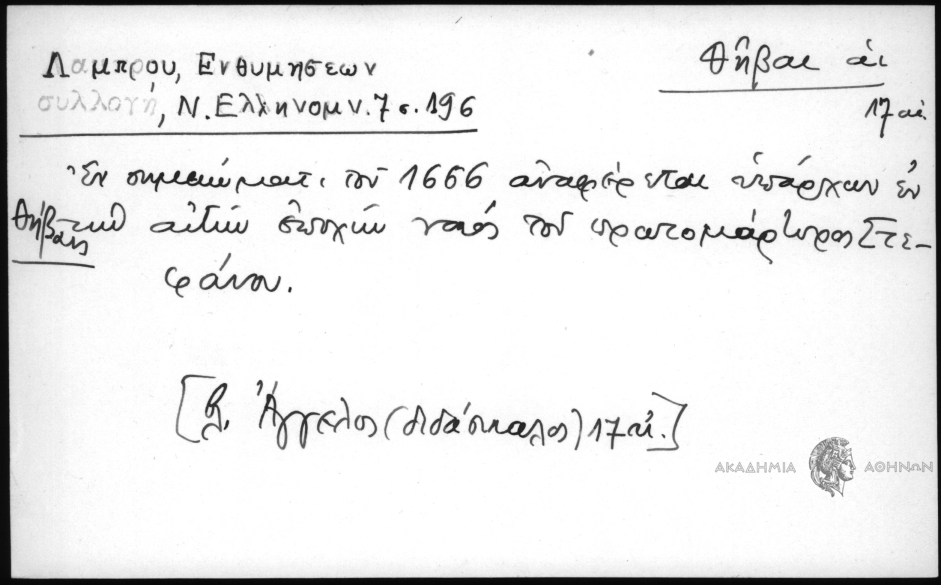 Λαμπρου, Ενθυμησεων
συλλογή, Ν. Ελληνομν. 7 σ. 196
Θῆβαι αἱ
17 αἰ.
Ἐν σημειώματι τοῦ 1666 ἀναφέρεται ὑπάρχων ἐν
Θήβαις κατ' αὐτὴν ἐποχὴν ναὸς τοῦ πρωτομάρτυρος Στε-
φάνου.
[Βλ. Ἄγγελος (διδάσκαλος) 17 αἰ.]
ΑΚΑΔΗΜΙΑ ΑΘΗΝΩΝ